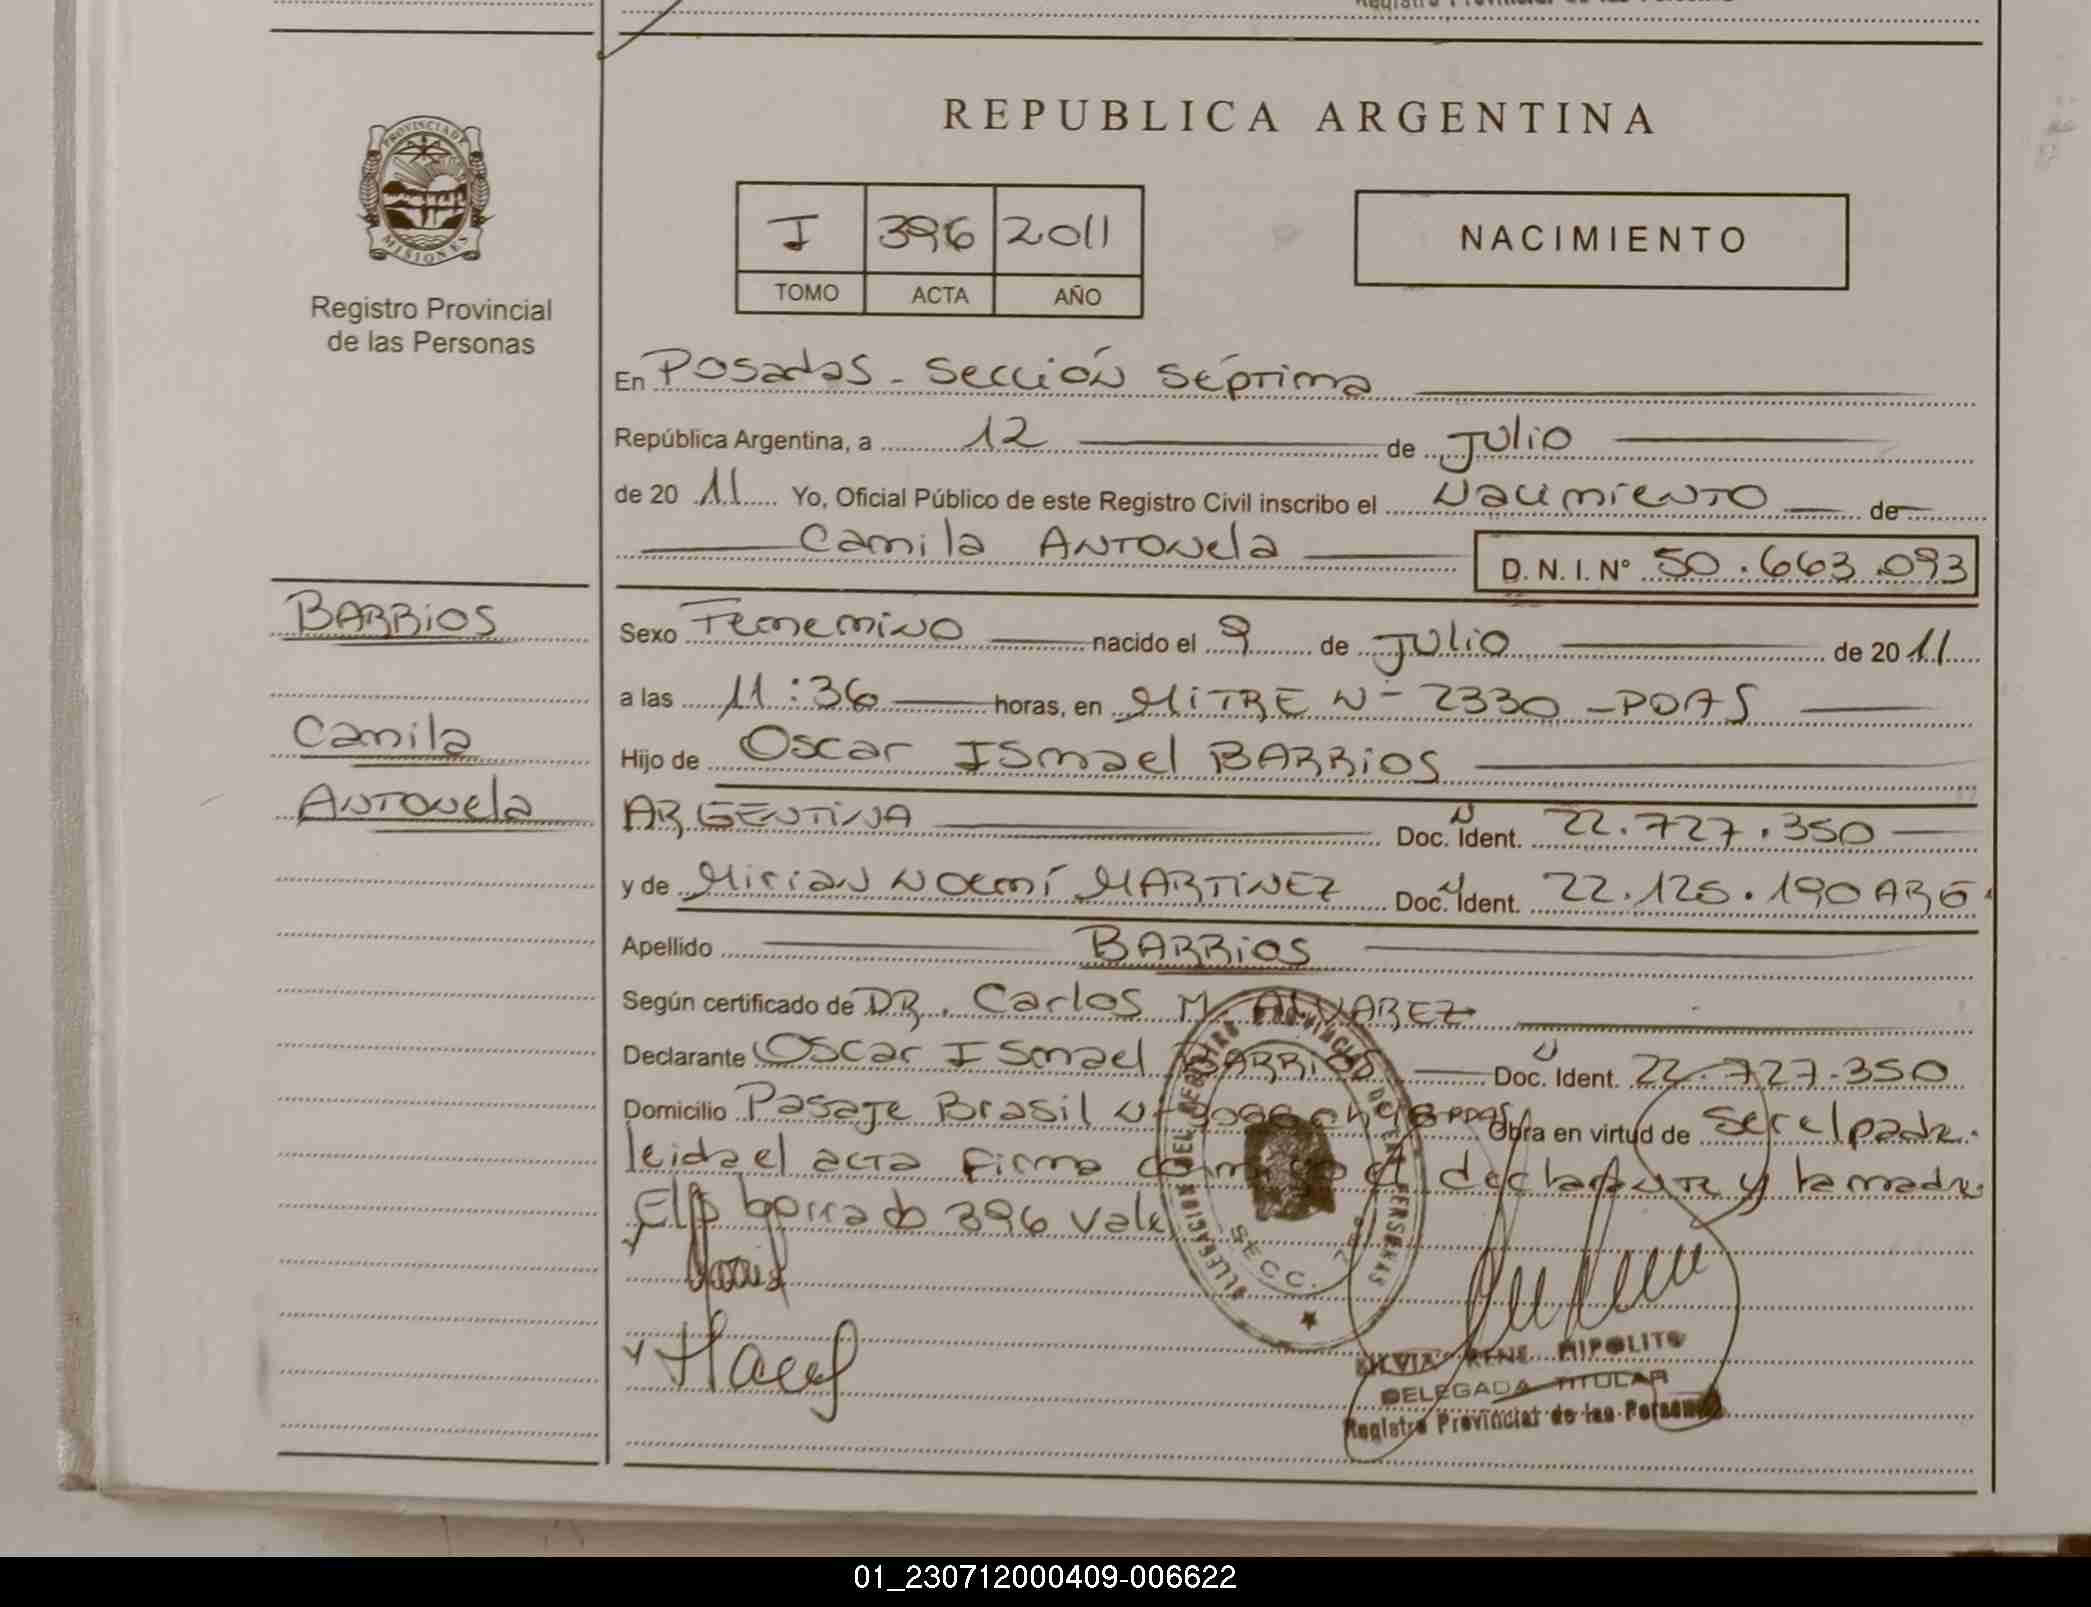 REPUBLICA ARGENTINA
PROVINCIA DE MISIONES
Registro Provincial
de las Personas
I 396 2011
TOMO ACTA AÑO
NACIMIENTO
En Posadas - Sección Séptima
República Argentina, a 12 de Julio
de 2011 Yo, Oficial Público de este Registro Civil inscribo el Nacimiento de
Camila Antonela D. N. I. Nº 50.663.093
BARRIOS
Camila
Antonela
Sexo Femenino nacido el 9 de Julio de 2011
a las 11:36 horas, en MITRE N- 2330 - PDAS
Hijo de Oscar Ismael BARRIOS
ARGENTINA Doc. Ident. 22.727.350
y de Mirian Noemí MARTINEZ Doc. Ident. 22.126.190 ARG
Apellido BARRIOS
Según certificado de DR. Carlos M. ALVAREZ
Declarante Oscar Ismael BARRIOS Doc. Ident. 22.727.350
Domicilio Pasaje Brasil PDAS Obra en virtud de ser el padre.
leida el acta firma conmigo el declarante y la madre
El borrado 396 vale
DELEGACION DEL REGISTRO PROVINCIAL DE LAS PERSONAS
SECC.
SILVIA IRENE HIPOLITO
DELEGADA TITULAR
Registro Provincial de las Personas
01_230712000409-006622